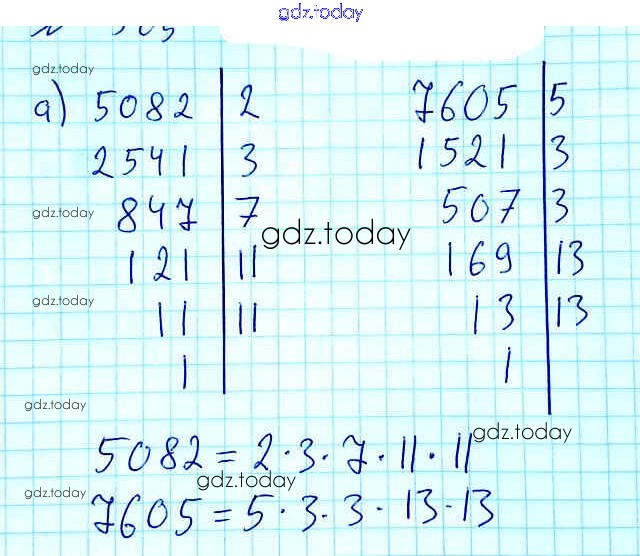 gdz.today
а) 5082 | 2 7605 | 5
2541 | 3 1521 | 3
847 | 7 507 | 3
121 | 11 169 | 13
11 | 11 13 | 13
1 | 1 |
5082 = 2 · 3 · 7 · 11 · 11
7605 = 5 · 3 · 3 · 13 · 13
gdz.today
gdz.today
gdz.today
gdz.today
gdz.today
gdz.today
gdz.today
gdz.today